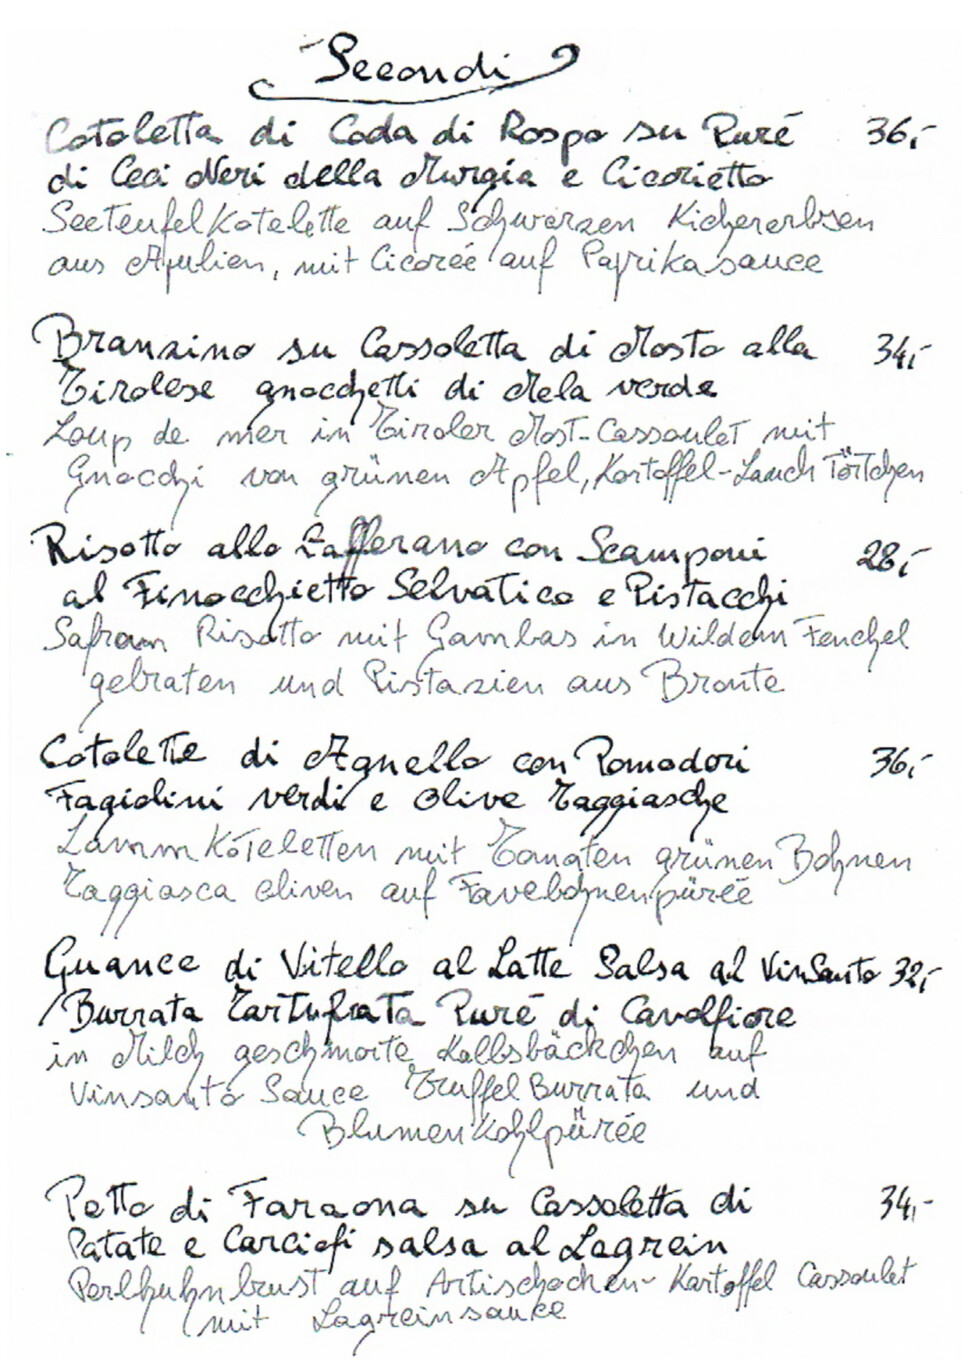 Secondi
Cotoletta di Coda di Rospo su Puré 36,-
di Ceci Neri della Murgia e Cicorietto
Seeteufelkotelette auf Schwarzen Kichererbsen
aus Apulien, mit Cicoréé auf Paprikasauce
Branzino su Cassoletta di Mosto alla 34,-
Tirolese gnocchetti di Mela verde
Loup de mer in Tiroler Most-Cassoulet mit
Gnocchi von grünen Apfel, Kartoffel-Lauch Törtchen
Risotto allo Zafferano con Scamponi 28,-
al Finocchietto Selvatico e Pistacchi
Safran Risotto mit Gambas in Wildem Fenchel
gebraten und Pistazien aus Bronte
Cotolette di Agnello con Pomodori 36,-
Fagiolini verdi e Olive Taggiasche
Lamm Koteletten mit Tomaten grünen Bohnen
Taggiasca Oliven auf Favebohnenpüréé
Guance di Vitello al Latte Salsa al VinSanto 32,-
Burrata Tartufata Puré di Cavolfiore
in Milch geschmorte Kalbsbäckchen auf
Vinsanto Sauce Truffel Burrata und
Blumenkohlpürée
Petto di Faraona su Cassoletta di 34,-
Patate e Carciofi salsa al Lagrein
Perlhuhnbrust auf Artischochen-Kartoffel Cassoulet
mit Lagreinsauce